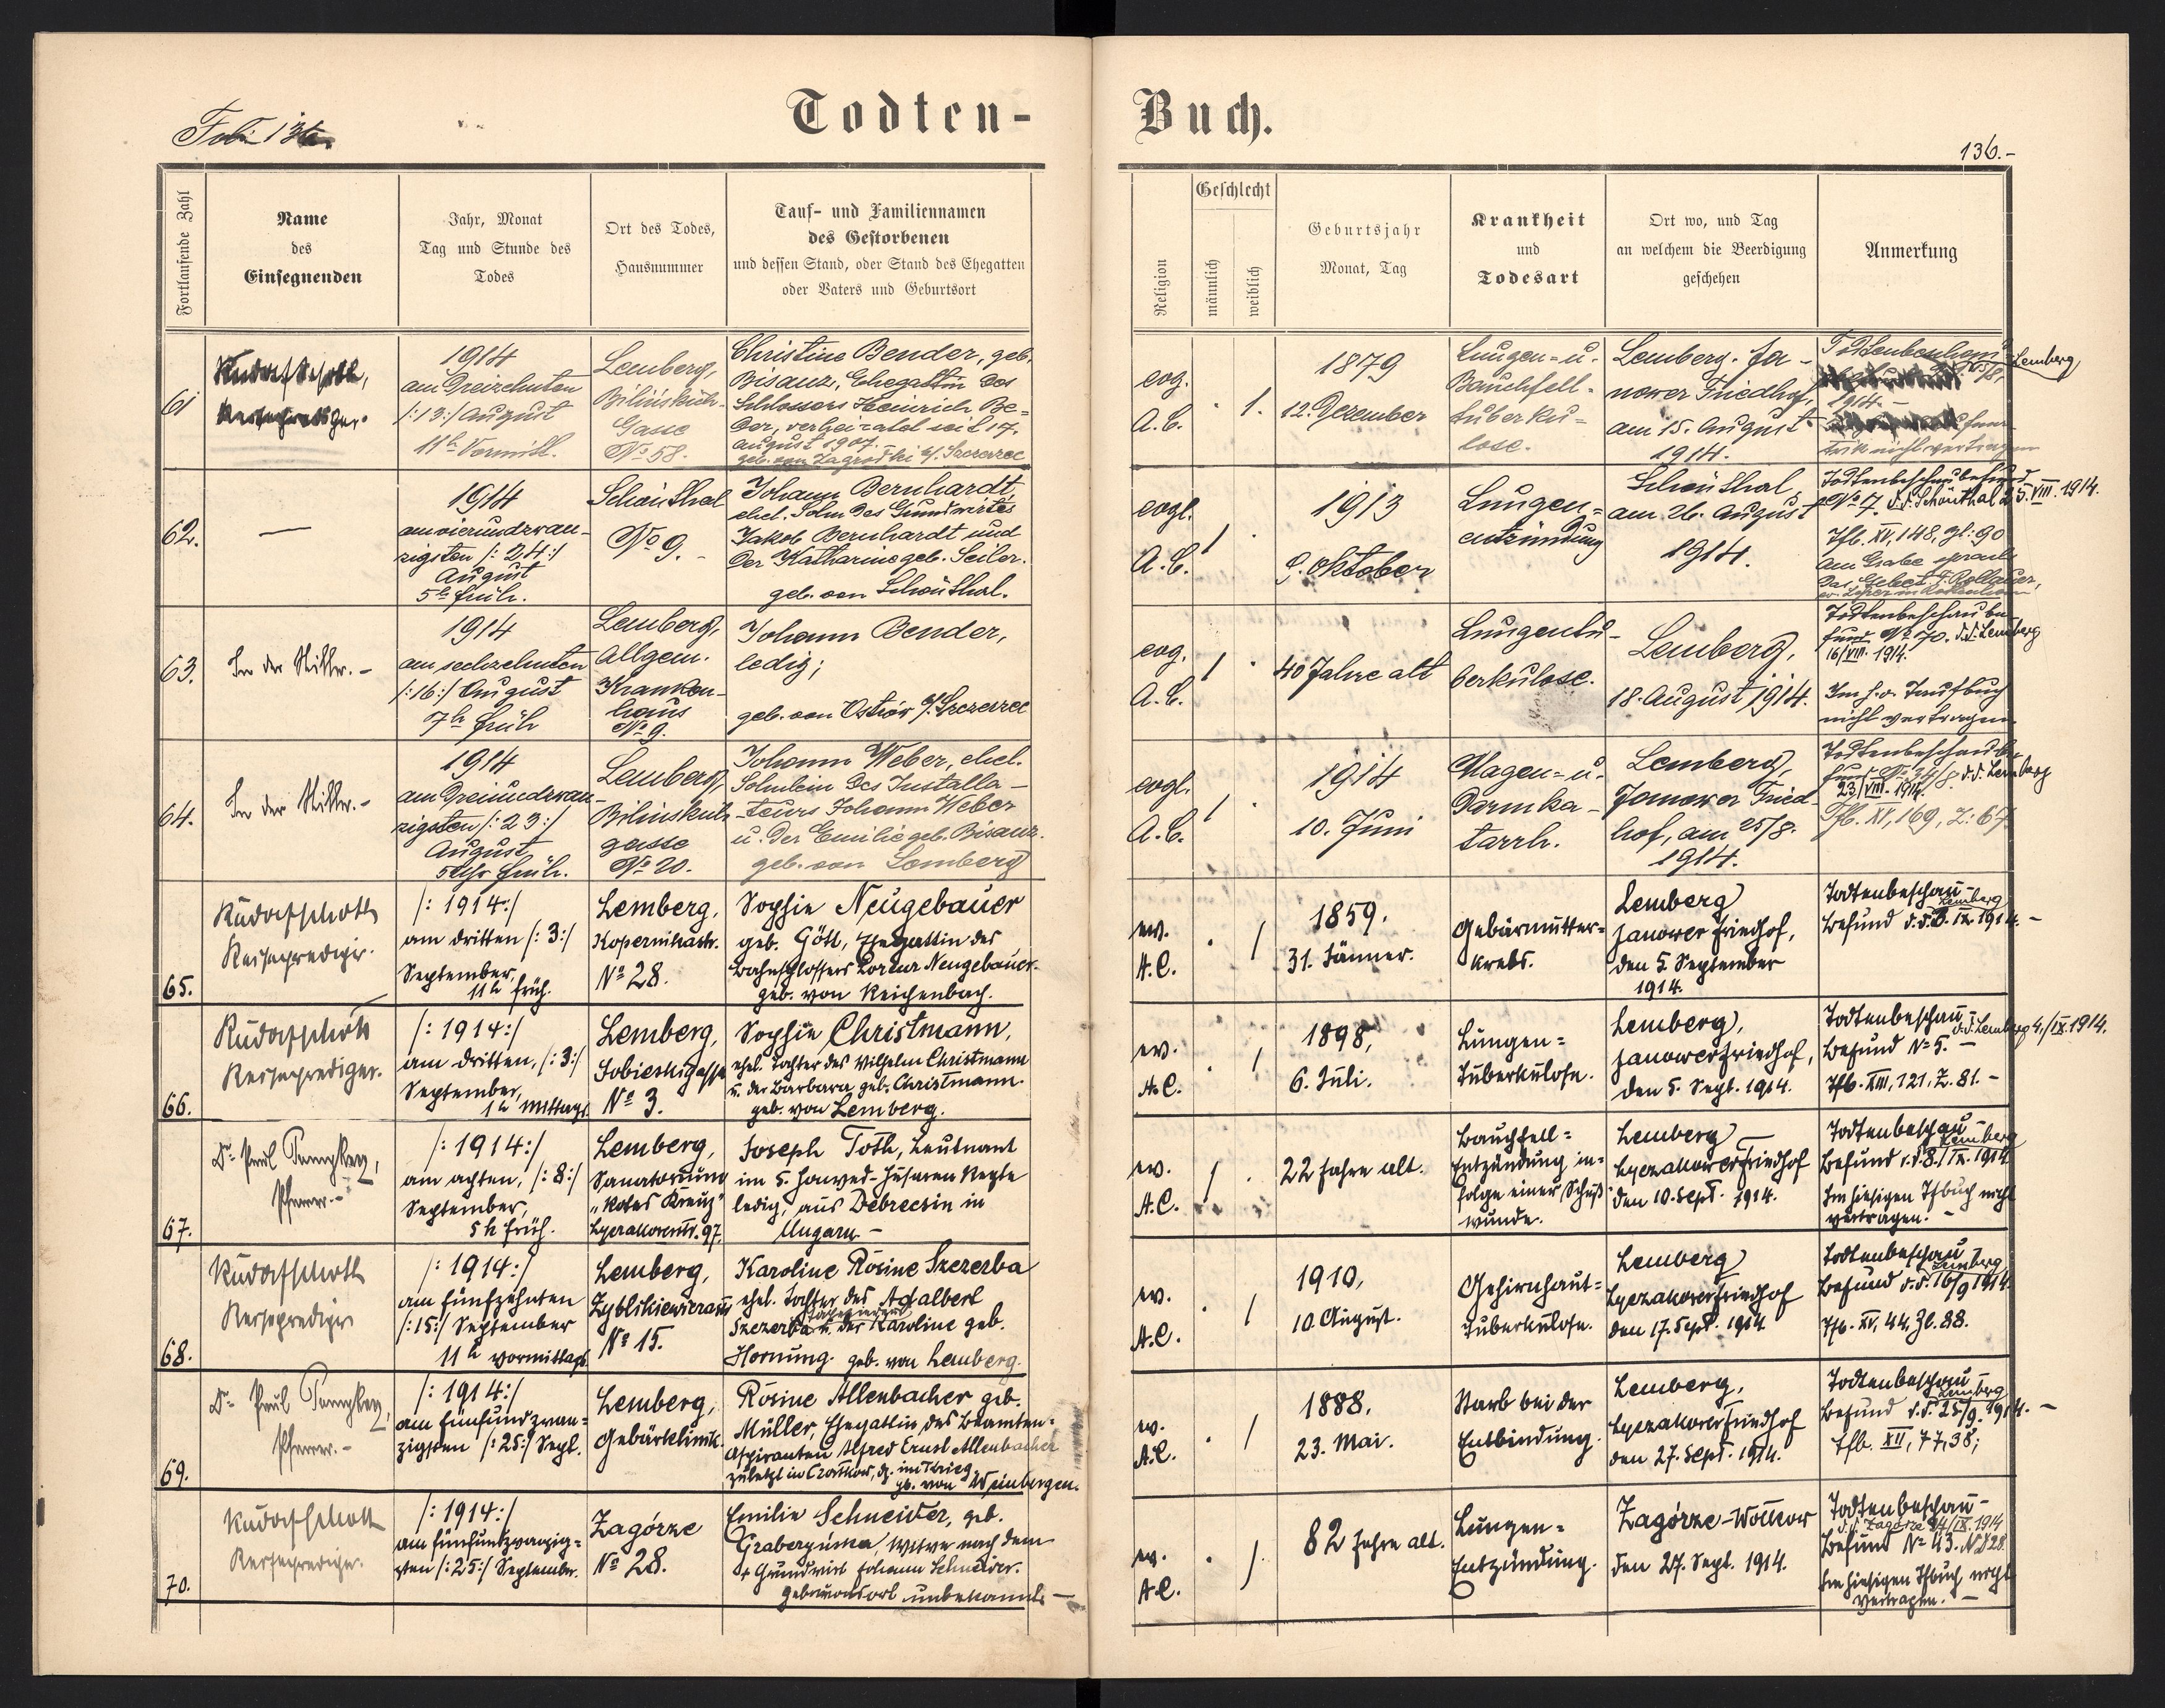 Todten-
Buch.
136.-
Fortlaufende Zahl
Name
des
Einsegnenden
Jahr, Monat
Tag und Stunde des
Todes
Ort des Todes,
Hausnummer
Tauf- und Familiennamen
des Gestorbenen
und dessen Stand, oder Stand des Ehegatten
oder Vaters und Geburtsort
Religion
Geschlecht
männlich
weiblich
Geburtsjahr
Monat, Tag
Krankheit
und
Todesart
Ort wo, und Tag
an welchem die Beerdigung
geschehen
Anmerkung
61
1914
am Dreizehnten
/:13:/ August
11h Vormitt.
Lemberg,
Gasse
No 58.
Christine Bender, geb.
Bisanz, Ehegattin des
Schlossers Heinrich Be=
der, verheiratet seit 17.
August 1907.
evg.
A.C.
1.
1879
12. Dezember
Lungen- u.
Bauchfell-
tuberku-
lose.
Lemberg. Ja-
nower Friedhof,
am 15. August
1914.
Lemberg
1914.-
62.
1914
am vierundzwan-
zigsten /:24:/
August
5h früh.
Schönthal
No 9.-
Johann Bernhardt
ehel. Sohn des Grundwirtes
Jakob Bernhardt und
der Katharine geb. Seiler.
geb. von Schönthal.
evgl.
A.C.
1
1913
9. Oktober
Lungen-
entzündung
Schönthal
am 26. August
1914.
Todtenbeschaubefund
No 7. d.d. Schönthal 25. VIII. 1914.
Tfb. XV, 148, Zl: 90
am Grabe sprach
63.
1914
am sechzehnten
/:16:/ August
7h früh
Lemberg,
Allgem.
Kranken-
haus
No 9.
Johann Bender,
ledig;
geb. von Ostrów b/. Szczerzec
evg.
A.C.
1
40 Jahre alt
Lungentu-
berkulose.
Lemberg,
18. August 1914.
Todtenbeschaube-
fund No 70. d.d. Lemberg
16/VIII. 1914.
Im h.o. Taufbuch
nicht vertragen.
64.
1914
am Dreiundzwan-
zigsten /:23:/
August
5 Uhr früh.
Lemberg,
gasse
No 20.
Johann Weber, ehel.
Söhnlein des Installa-
teurs Johann Weber
u. der Emilie geb. Bisanz.
geb. von Lemberg
evgl.
A.C.
1
1914
10. Juni
Magen- u.
Darmka-
tarrh.
Lemberg,
Janower Fried-
hof, am 25/8.
1914.
23/VIII. 1914.
Tfb. XV, 169, Z: 67
65.
Rudolf Scholtz
Reiseprediger.
/:1914:/
am dritten /:3:/
September,
11h früh.
Lemberg,
Kopernikastr.
No 28.
Sophie Neugebauer
geb. Göttl, Ehegattin des
Bahnschlossers Lorenz Neugebauer.
geb. von Reichenbach.
ev.
A.C.
1
1859.
31. Jänner.
Gebärmutter=
krebs.
Lemberg
Janower Friedhof,
den 5. September
1914.
Todtenbeschau-
Lemberg
Befund d.d. 3. IX. 1914.-
66.
Rudolf Scholtz
Reiseprediger.
/:1914:/
am dritten, /:3:/
September,
1h mittags
Lemberg,
Sobieskigasse
No 3.
Sophie Christmann,
ehel. Tochter des Wilhelm Christmann
u. der Barbara geb. Christmann.
geb. von Lemberg.
ev.
A.C.
1
1898,
6. Juli.
Lungen=
Tuberkulose.
Lemberg,
Janower Friedhof,
den 5. Sept. 1914.
Todtenbeschau-
d.d. Lemberg 4./IX. 1914.
Befund No 5.-
Tfb. XIII, 121, Z. 81.-
67.
Pfarrer.-
/:1914:/
am achten, /:8:/
September,
5h früh.
Lemberg,
Sanatorium
„Rotes Kreuz"
Lyczakowerstr. 97.
Joseph Toth, Leutnant
im 5. Honved-Husaren Regte
ledig, aus Debreczin in
Ungarn-
ev.
A.C.
1
22 Jahre alt.
Bauchfell=
Entzündung in=
folge einer Schuß
wunde.
Lemberg
Lyczakower Friedhof
den 10. Sept. 1914.
Todtenbeschau-
Lemberg
Befund d.d. 8./IX. 1914
Im hiesigen Tfbuch nicht
vertragen.-
68.
Rudolf Scholtz
Reiseprediger
/:1914:/
am fünfzehnten
/:15:/ September
11h vormittags
Lemberg,
No 15.
Karoline Rosine Szczerba
ehel. Tochter des Adalbert
Szczerba u. der Karoline geb.
Hornung. geb. von Lemberg.
ev.
A.C.
1
1910,
10 August.
Gehirnhaut=
tuberkulose.
Lemberg
Lyczakower Friedhof
den 17. Sept. 1914
Todtenbeschau-
Lemberg
Befund d.d. 16/9 1914
Tfb. XV, 44, Zl. 88.
69.
Pfarrer.-
/:1914:/
am fünfundzwan=
zigsten /:25:/ Sept.
Lemberg,
Gebärklinik.
Rosine Allenbacher geb.
Müller, Ehegattin des Beamten=
Aspiranten Alfred Ernst Allenbacher
zuletzt in Czortkow, dz. im Krieg
gb. von Weinbergen.
ev.
A.C.
1
1888.
23. Mai.
Starb bei der
Entbindung.
Lemberg,
Lyczakower Friedhof
den 27. Sept. 1914.
Todtenbeschau-
Lemberg
Befund d.d. 25/9. 1914.-
Tfb. XII, 77, 38;
70.
Rudolf Scholtz
Reiseprediger.
/:1914:/
am fünfundzwanzig=
sten /:25:/ September.
Zagórze
No 28.
Emilie Schneider, geb.
Witwe nach dem
+ Grundwirt Johann Schneider.
Geburtsort unbekannt.-
ev.
A.C.
1
82 Jahre alt.
Lungen=
Entzündung.
Zagórze-Wolkow
den 27. Sept. 1914.
Todtenbeschau-
d.d. Zagórze 24/IX. 1914
Befund No 43.
Im hiesigen Tfbuch nicht
vertragen.-